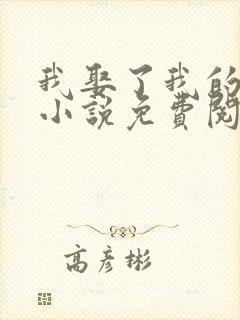 我娶了我的
小説免費閱
高彦彬